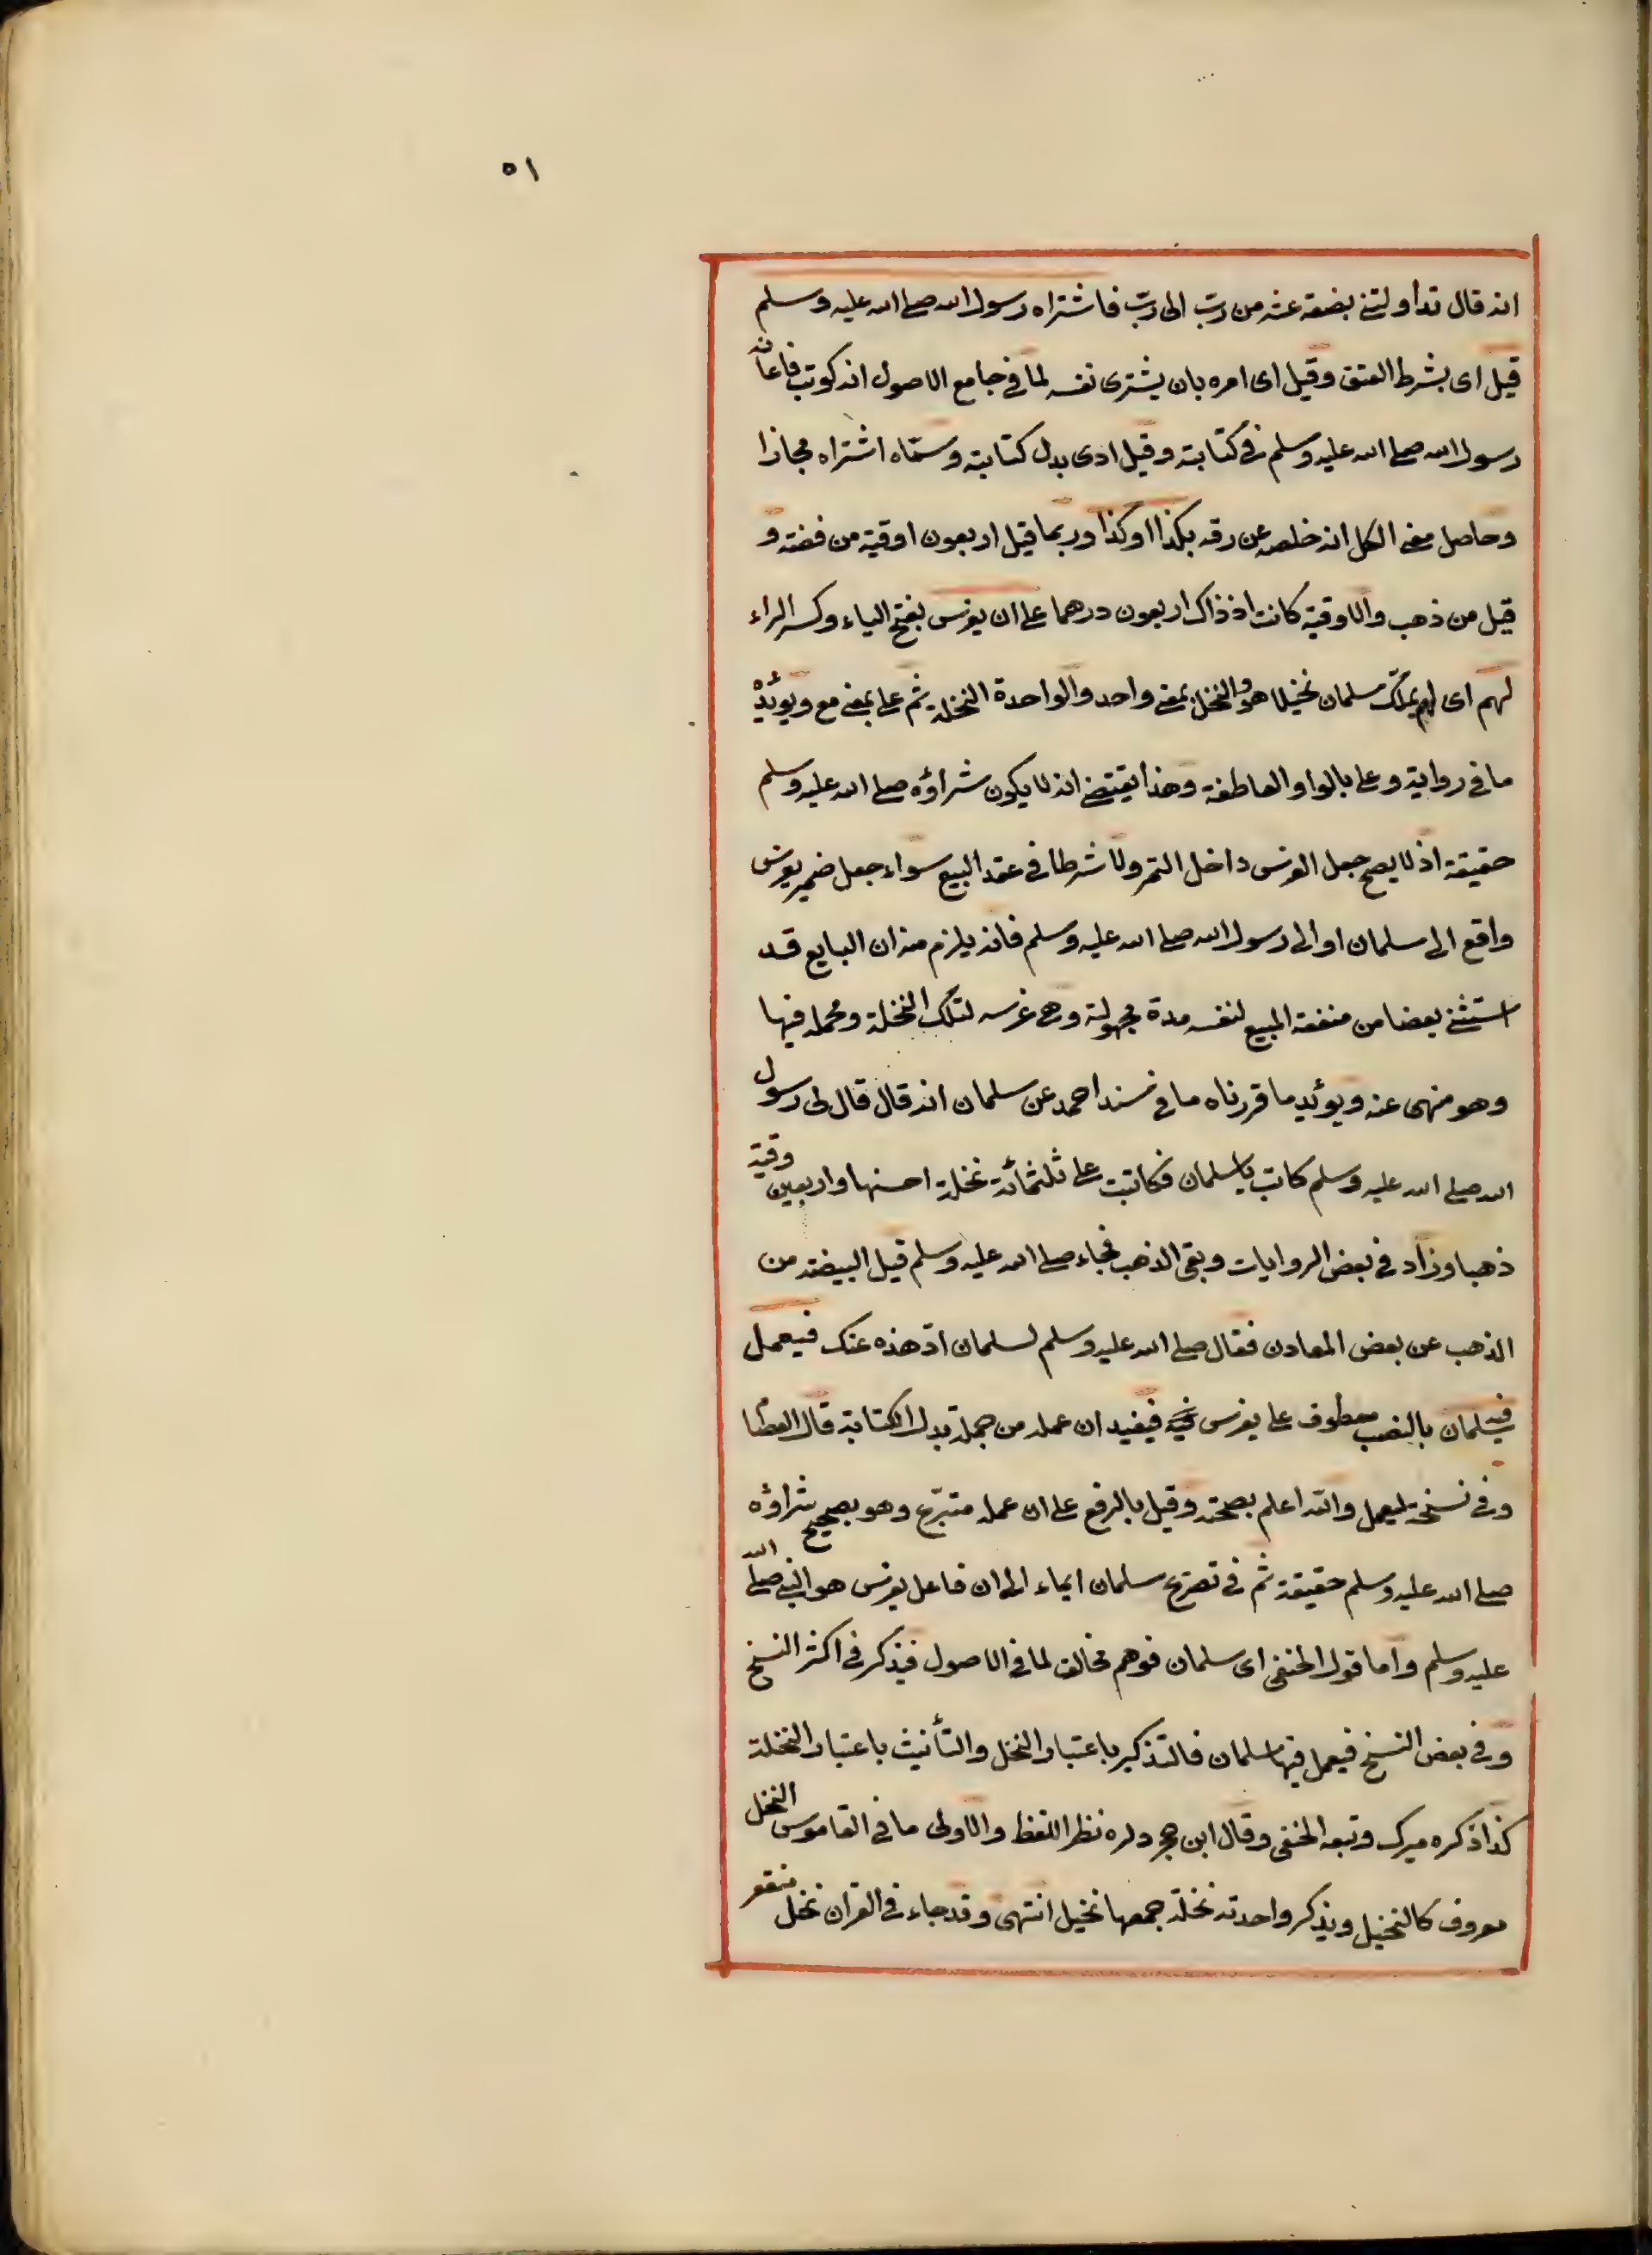 ٥١
انه قال تداولتنى بضعة عشر من ربّ الى ربّ فاشتراه رسول الله صلى الله عليه وسلم
قيل اى بشرط العتق وقيل اى امره بان يشترى نفسه لما فى جامع الاصول انه كوتب فاعانه
رسول الله صلى الله عليه وسلم فى كتابته وقيل ادى بدل كتابته وسمّاه اشتراه مجازا
وحاصل معنى الكل انه خلصه عن رقه بكذا اوكذا وربما قيل اربعون اوقية من فضته و
قيل من ذهب والاوقية كانت اذ ذاك اربعون درهما على ان يغرس بفتح الياء وكسر الراء
لهم اى لم يملك سلمان نخيلا هو والنخل بمعنى واحد والواحدة النخلة ثم على بمعنى مع ويؤيده
ما فى رواية وعلى بالواو العاطفة وهذا يقتضى انه لا يكون شراؤه صلى الله عليه وسلم
حقيقة اذ لا يصح جعل الغرس داخل الثمر ولا شرطا فى عقد البيع سواء جعل ضمير يغرس
واقع الى سلمان او الى رسول الله صلى الله عليه وسلم فانه يلزم منه ان البايع قد
استثنى بعضا من منفعة المبيع لنفسه مدة مجهولة وهى غرسه لتلك النخلة ومحمله فيها
وهو منهى عنه ويؤيد ما قررناه ما فى مسند احمد عن سلمان انه قال قال لى رسول
الله صلى الله عليه وسلم كاتب يا سلمان فكاتبت على ثلثمائة نخلة احسنها واربعين وقية
ذهبا وزاد فى بعض الروايات وبقى الذهب فجاء صلى الله عليه وسلم قيل البيضة من
الذهب عن بعض المعادن فقال صلى الله عليه وسلم لسلمان ادّ هذه عنك فيعمل
فيه سلمان بالنصب معطوف على يغرس فيفيد ان عمله من جملة بدل الكتابة قال العصا
وفى نسخة ليعمل والله اعلم بصحته وقيل بالرفع على ان عمله متبرّع وهو بصحيح شراؤه
صلى الله عليه وسلم حقيقة ثم فى تصريح سلمان ايماء الى ان فاعل يغرس هو النبى صلى الله
عليه وسلم واما قول الحنفى اى سلمان فوهم مخالف لما فى الاصول فيذكر فى اكثر النسخ
وفى بعض النسخ فيعمل فيها سلمان فالتذكير باعتبار النخل والتأنيث باعتبار النخلة
كذا ذكره ميرك وتبعه الحنفى وقال ابن حجر نظر اللفظ والاولى ما فى القاموس النخل
معروف كالنخيل ويذكر واحدته نخلة جمعها نخيل انتهى وقد جاء فى القران نخل منقعر